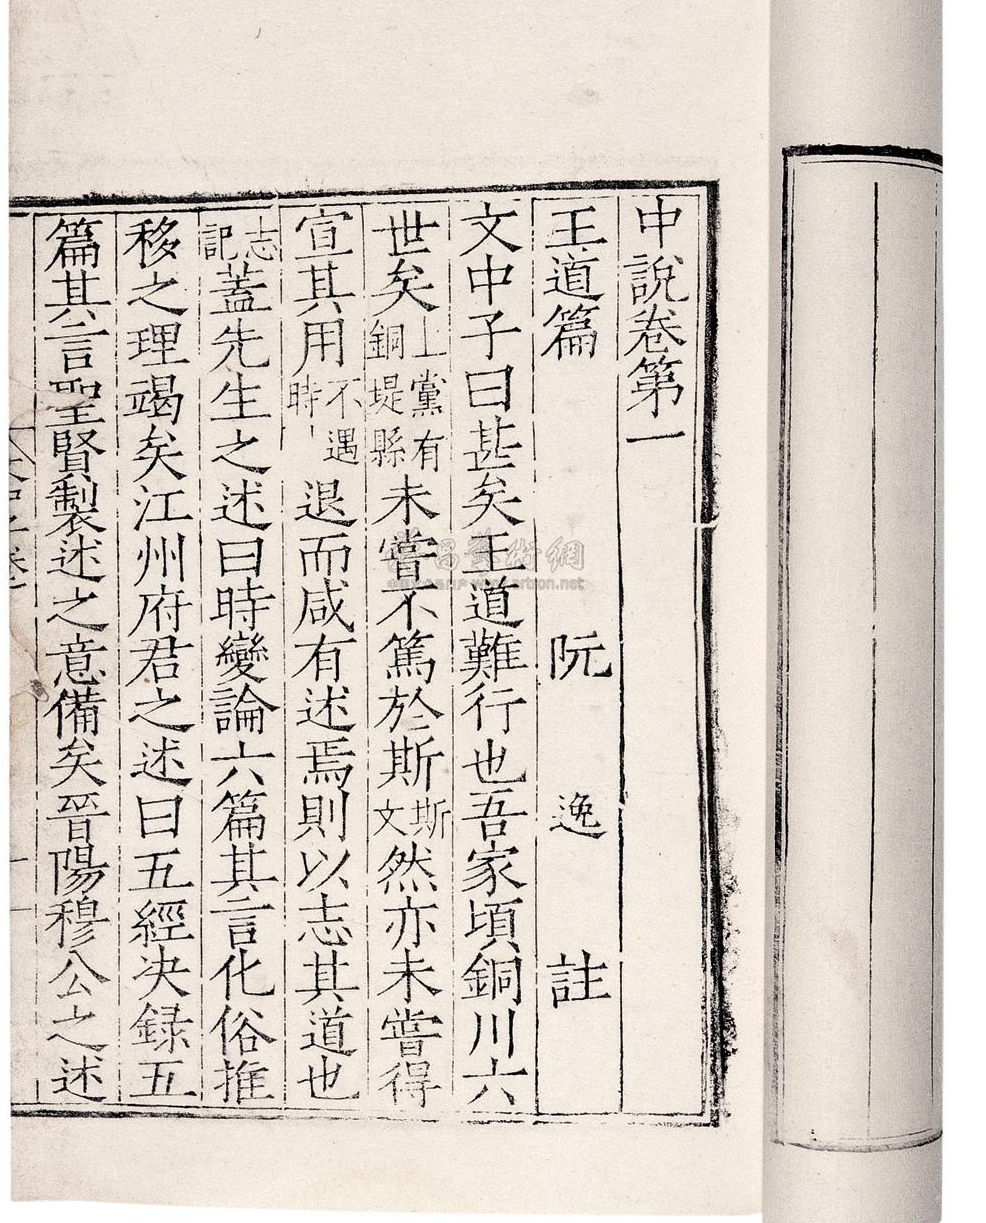 中說卷第一
王道篇 阮 逸 註
文中子曰甚矣王道難行也吾家頃銅川六
世矣上黨有銅堤縣未嘗不篤於斯斯文然亦未嘗得
宣其用不遇時退而咸有述焉則以志其道也
志記蓋先生之述曰時變論六篇其言化俗推
移之理竭矣江州府君之述曰五經决録五
篇其言聖賢製述之意備矣晉陽穆公之述